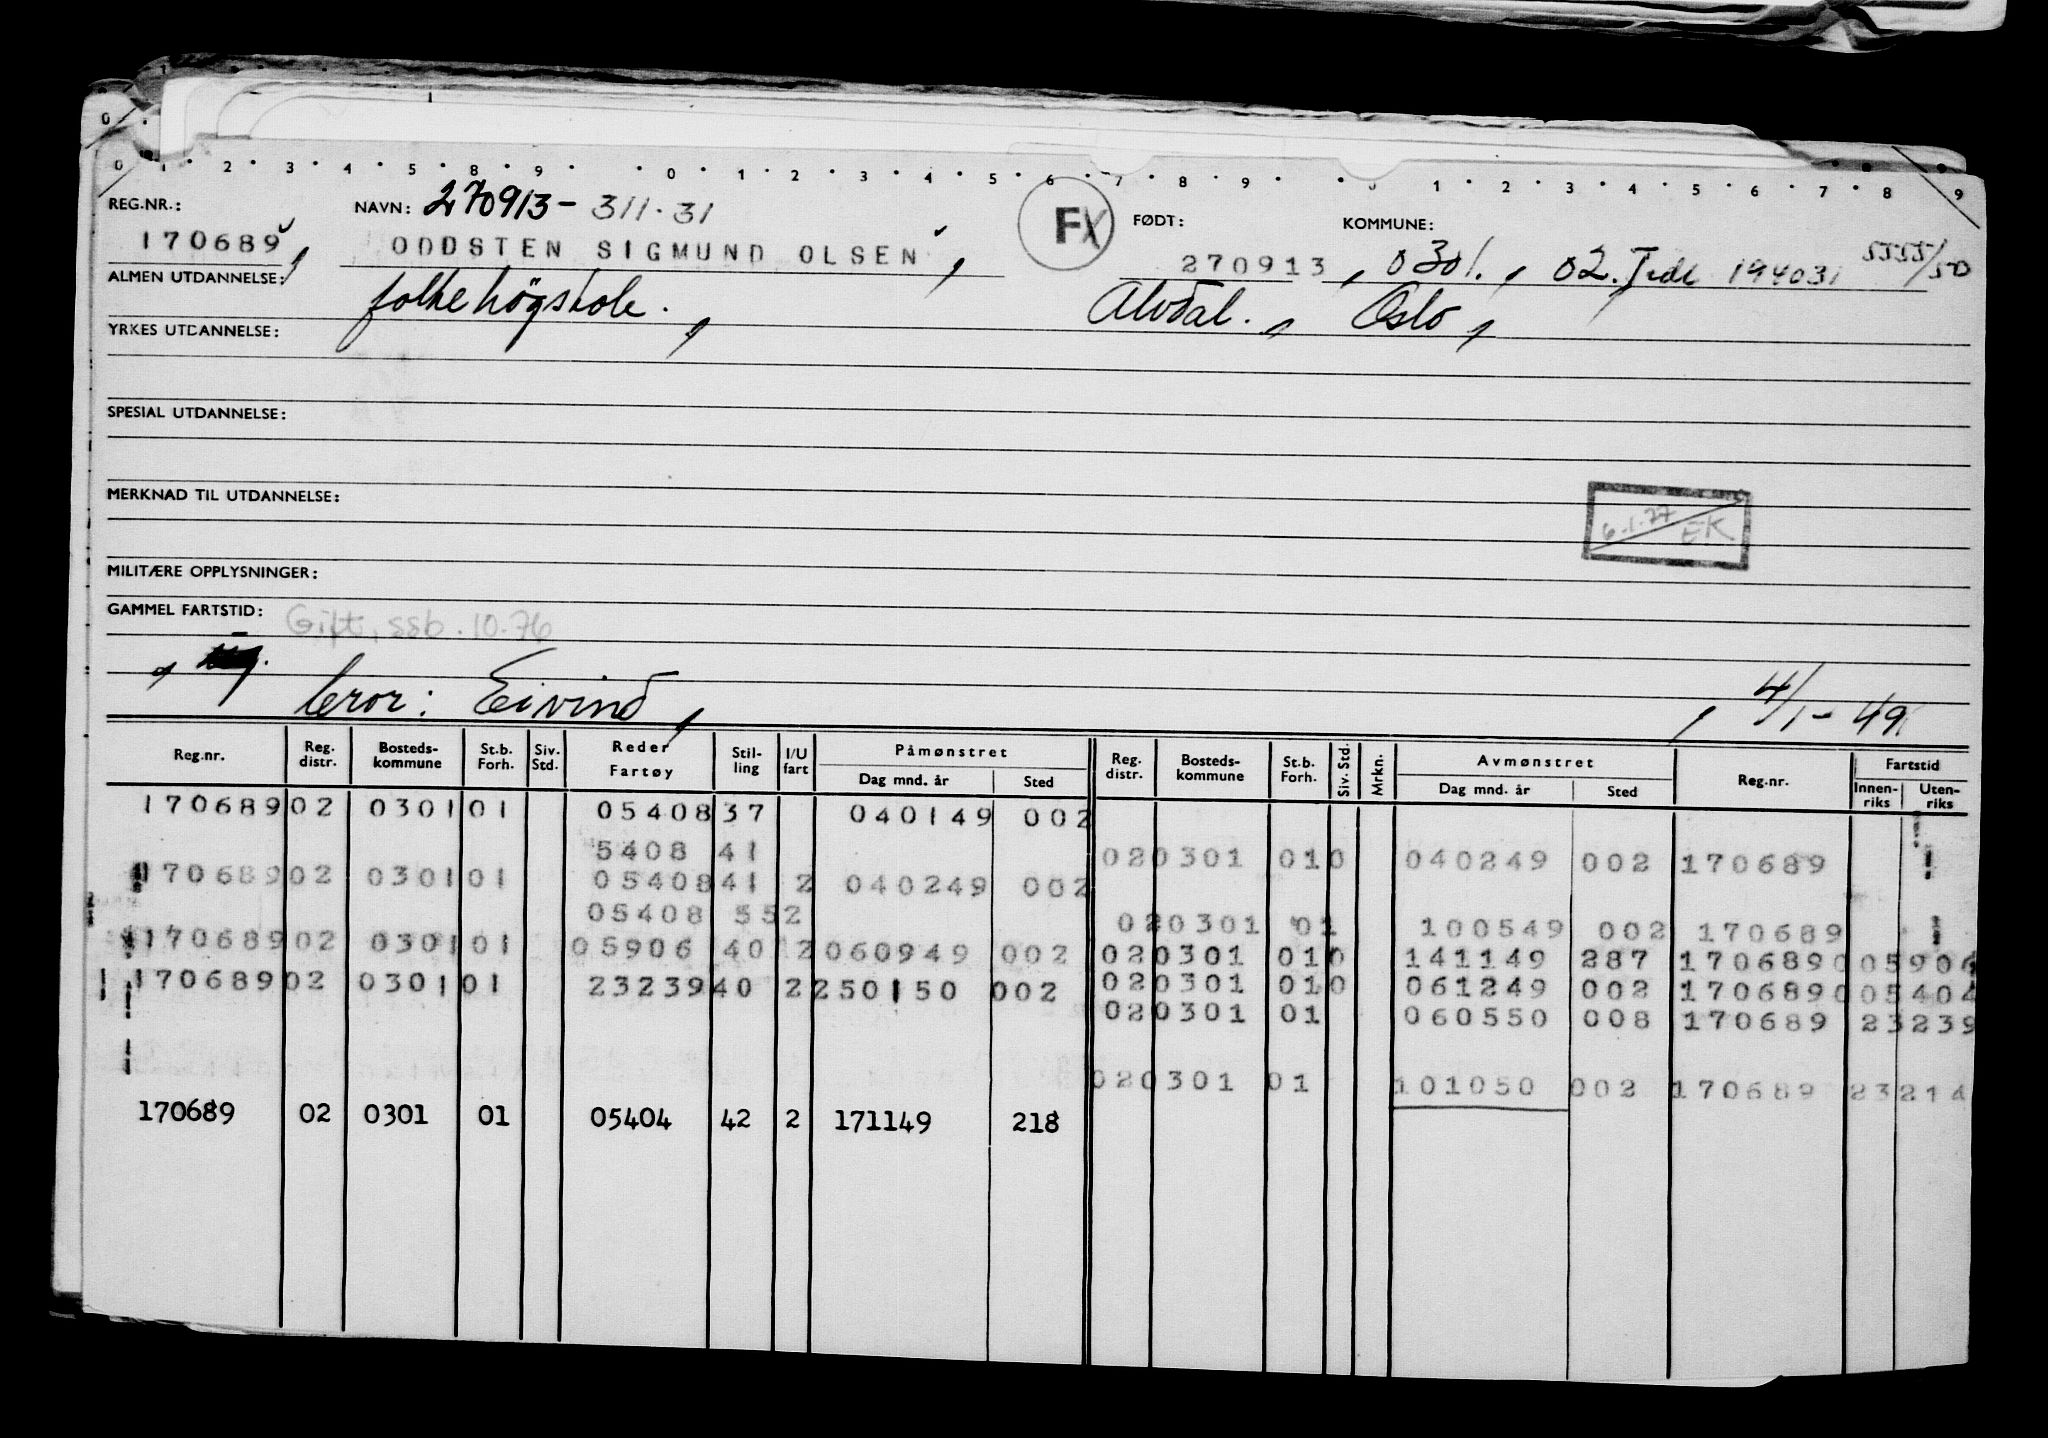 0
0 1 2 3 4 5 8 9 0 1 2 3 4 5 6 7 8 9 0 1 2 3 4 5 6 7 8 9
REG.NR.: NAVN: 270913- 311.31 FX FØDT: KOMMUNE:
170689, ODDSTEN SIGMUND OLSEN, 270913, 0301., 02. 194031 5555/50
ALMEN UTDANNELSE: folkehögskole., Alvdal., Oslo,
YRKES UTDANNELSE:
SPESIAL UTDANNELSE:
MERKNAD TIL UTDANNELSE:
6.1.77 EK
MILITÆRE OPPLYSNINGER:
GAMMEL FARTSTID: Gift, ssb. 10.76
bror: Eivind, , 4/1-49
Reg.nr. Reg. distr. Bosteds-kommune St.b. Forh. Siv. Std. Reder Fartøy Stil-ling I/U fart Påmønstret Dag mnd. år Sted Reg. distr. Bosteds-kommune St.b. Forh. Siv. Std. Mrkn. Avmønstret Dag mnd. år Sted Reg.nr. Fartstid Innen-riks Uten-riks
170689 02 0301 01 05408 37 040149 002
5408 41 02 0301 010 040249 002 170689
170689 02 0301 01 05408 41 2 040249 002
05408 55 2 02 0301 01 100549 002 170689
170689 02 0301 01 05906 40 2 060949 002 02 0301 010 141149 287 170689 0 05906
170689 02 0301 01 23239 40 2 250150 002 02 0301 010 061249 002 170689 0 05404
02 0301 01 060550 008 170689 23239
02 0301 01 101050 002 170689 23214
170689 02 0301 01 05404 42 2 171149 218